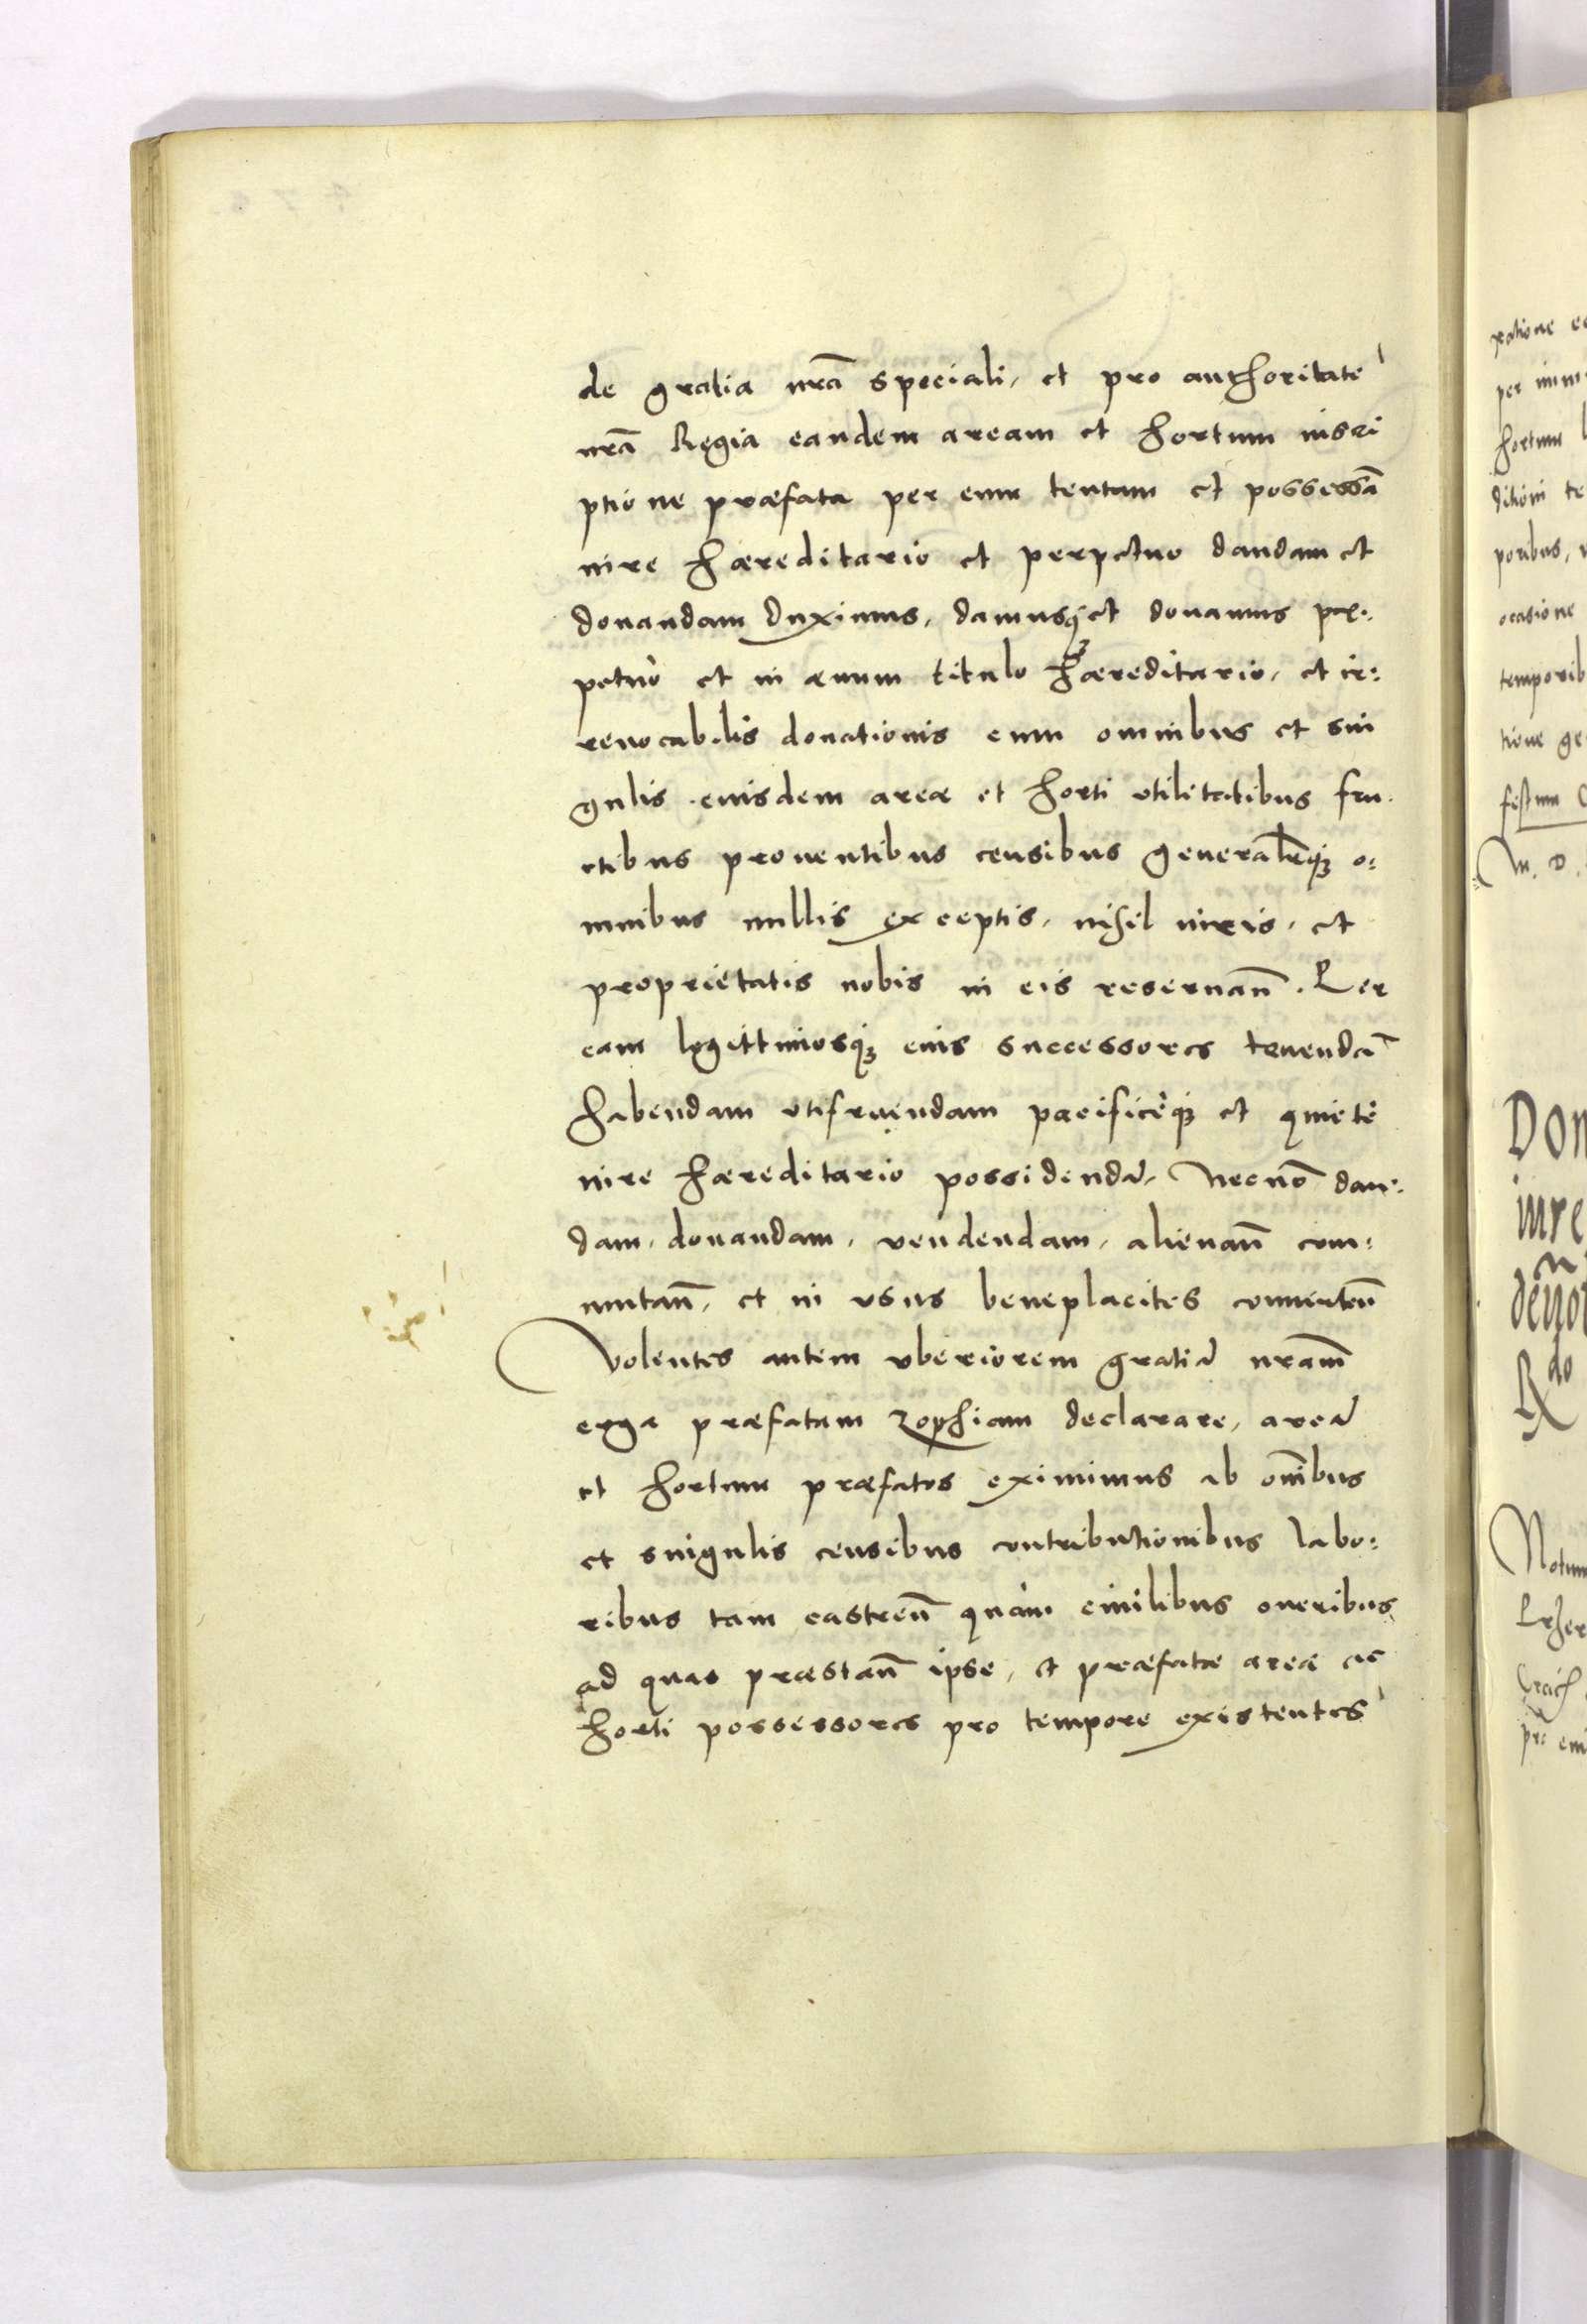 de gratia nr̃a speciali, et pro authoritate
nr̃a Regia eandem aream et hortum inscri
ptione præfata per eum tentam et possessã
iure hæreditario et perpetuo dandam et
donandam duximus, damusq̃ et donamus per:
petuò et in æuum titulo hæreditario, et ir:
reuocabilis donationis cum omnibus et sin
gulis eiusdem areæ et horti vtilitatibus fru
ctibus prouentibus censibus generaliterq̃ o:
mnibus nullis exceptis, nihil iuris, et
proprietatis nobis in eis reseruañ. Per
eam legittimosq̃ eius successores tenendã
habendam vtifruendam pacificèq̃ et quietè
iure hæreditario possidendã, Necnõ dan:
dam, donandam, vendendam, alienañ com:
mutañ, et in vsus beneplacitos conuerteñ
Volentes autem vberiorem gratiã nram̃
erga præfatam Zophiam declarare, areã
et hortum præfatos eximimus ab om̃ibus
et singulis censibus contributionibus labo:
ribus tam castreñ quàm ciuilibus oneribus
ad quas præstañ ipse, et præfatæ areæ ac
horti possessores pro tempore existentes
ratione
per
hortum
ditioni te
poribus,
ocasione
temporib
tione ge
festum
M. D.
Don
iure
deuo
Rdo
Notum
Crach